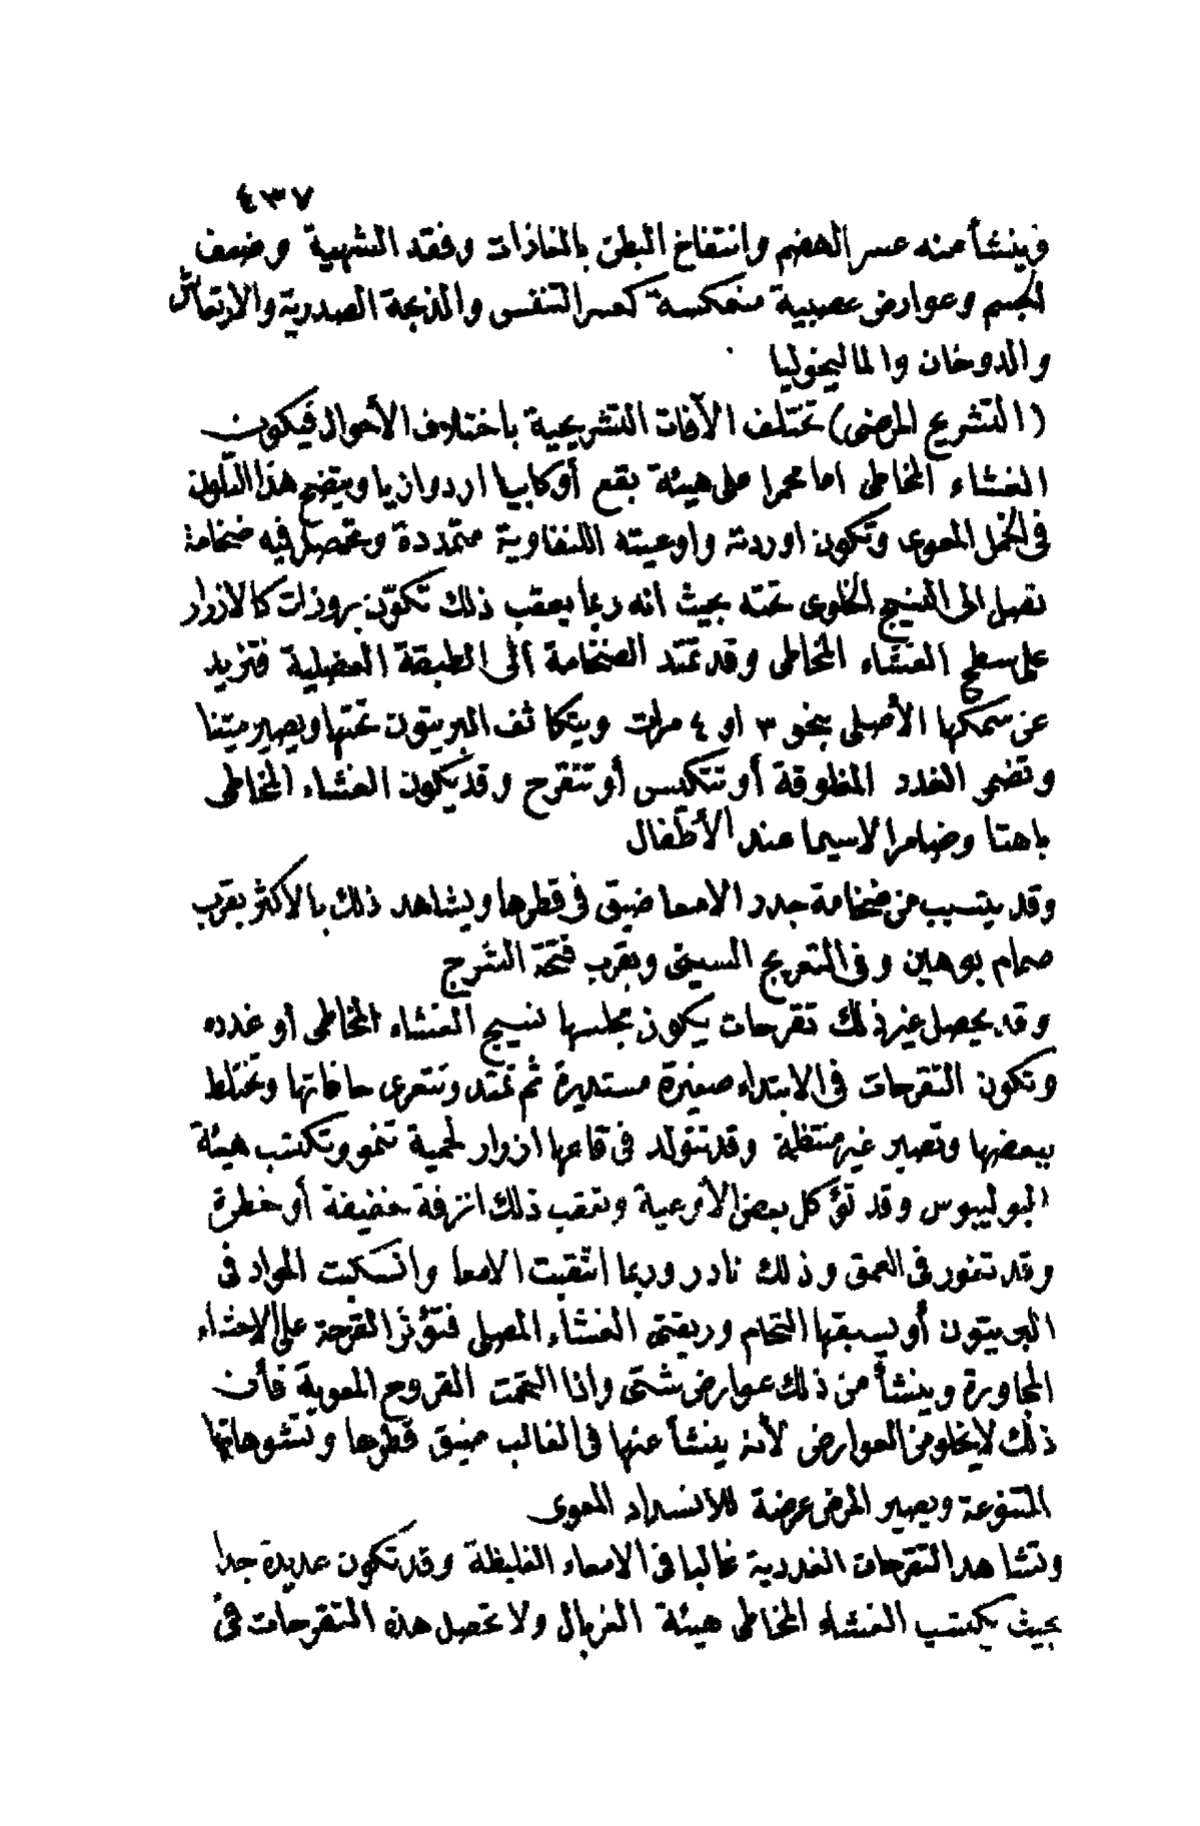 ٤٣٧
فينشأ منه عسر الهضم وانتفاخ البطن بالغازات وفقد الشهية وضعف
الجسم وعوارض عصبية منعكسة كعسر التنفس والذبحة الصدرية والارتعاش
والدوخان والماليخوليا
(التشريح المرضى) تختلف الآفات التشريحية باختلاف الأحوال فيكون
الغشاء المخاطى اما محمرا على هيئة بقع أو كابيا اردوازيا ويتضح هذا التلون
فى الخمل المعوى وتكون اوردته واوعيته اللنفاوية متمددة وتحصل فيه ضخامة
تصل الى النسيج الخلوى تحته بحيث انه ربما يعقب ذلك تكوّن بروزات كالازرار
على سطح الغشاء المخاطى وقد تمتد الضخامة الى الطبقة العضلية فتزيد
عن سمكها الأصلى بنحو ٣ او ٤ مرات ويتكاثف البريتون تحتها ويصير متينا
وتضمر الغدد المظروقة أو تتكيس أو تتقرح وقد يكون الغشاء المخاطى
باهتا وضامرا لاسيما عند الأطفال
وقد يتسبب من ضخامة جدر الامعا ضيق فى قطرها ويشاهد ذلك بالاكثر بقرب
صمام بوهين وفى التعريج السينى وبقرب فتحة الشرج
وقد يحصل غير ذلك تقرحات يكون مجلسها نسيج الغشاء المخاطى أو غدده
وتكون التقرحات فى الابتداء صغيرة مستديرة ثم تمتد وتتعرى حافاتها وتختلط
ببعضها وتصير غير منتظمة وقد تتولد فى قاعها ازرار لحمية تنمو وتكتسب هيئة
البوليبوس وقد تؤكل بعض الأوعية وتعقب ذلك انزفة خفيفة أو خطرة
وقد تغور فى العمق وذلك نادر وربما انثقبت الامعا وانسكبت المواد فى
البريتون أو يسبقها التحام وريقتى الغشاء المصلى فتؤثر القرحة على الاحشاء
المجاورة وينشأ من ذلك عوارض شتى واذا التحمت القروح المعوية فأن
ذلك لا يخلو من العوارض لأنه ينشأ عنها فى الغالب ضيق قطرها وتشوهاتها
المتنوعة ويصير المرض عرضة للانسداد المعوى
وتشاهد التقرحات الغددية غالبا فى الامعاء الغليظة وقد تكون عديدة جدا
بحيث يكتسب الغشاء المخاطى هيئة الغربال ولا تحصل هذه التقرحات فى